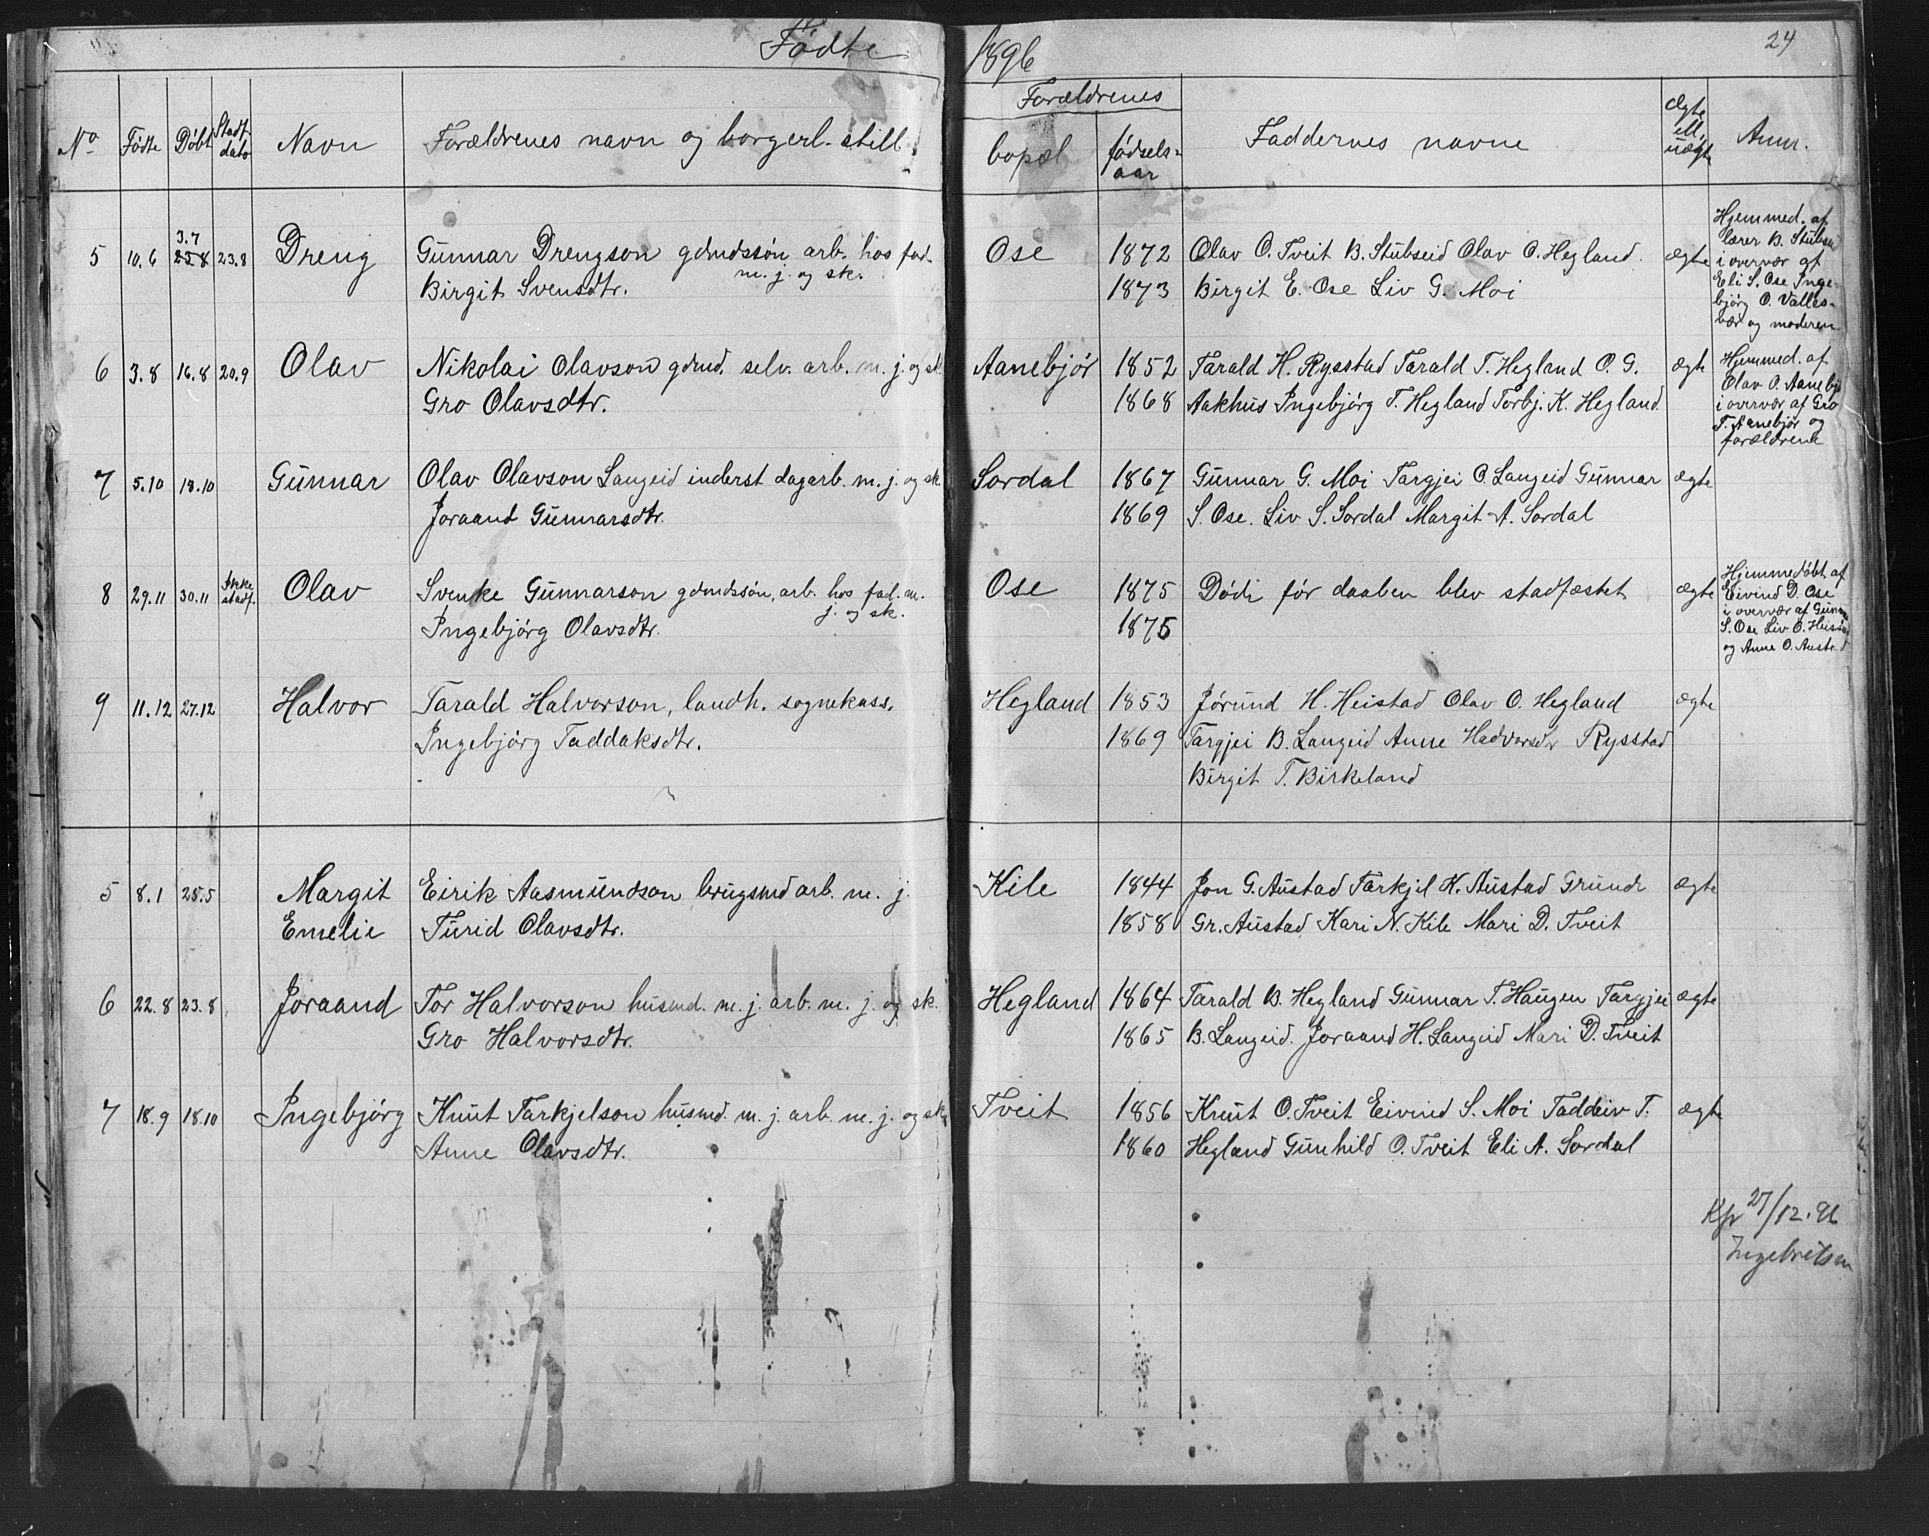 Fødte 1896 24
No Fødte Døbt Stadf. dato Navn Forældrenes navn og borgerl. still. Forældrenes bopæl fødsels-aar Faddernes navne Ægte ell. uægte Anm.
5 10.6 3.7 23.8 23.8 Dreng Gunnar Drengson gdmdssøn arb. hos fad. Ose 1872 Olav O. Tveit B. Stubseid Olav O. Hegland ægte
m. j. og sk.
Birgit Svensdtr. 1873 Birgit E. Ose Liv G. Moi
Hjemmed. af
lærer B. Stubsei
i overvær af
Eli S. Ose Inge-
bjørg O. Valles-
vær og moderen
6 3.8 16.8 20.9 Olav Nikolai Olavson gdmd. selv. arb. m. j. og sk. Aanebjør 1852 Tarald H. Rysstad Tarald T. Hegland O. G. ægte
Gro Olavsdtr. 1868 Aakhus Ingebjørg T. Hegland Torbj. K. Hegland
Hjemmed. af
Olav O. Aanebjø
i overvær af Gro
T. Aanebjør og
forældrene
7 5.10 18.10 Gunnar Olav Olavson Langeid inderst dagarb. m. j. og sk Sordal 1867 Gunnar G. Moi Targjei O. Langeid Gunnar ægte
Joraand Gunnarsdtr. 1869 S. Ose. Liv S. Sordal Margit A. Sordal
8 29.11 30.11 Ikke stadf. Olav Svenke Gunnarson gdmdssøn, arb. hos fad. m. Ose 1875 Døde før daaben blev stadfæstet ægte
j. og sk.
Ingebjørg Olavsdtr. 1875
Hjemmedøbt af
Eivind D. Ose
i overvær af Gunn
S. Ose Liv O. Heista
og Anne O. Austad
9 11.12 27.12 Halvor Tarald Halvorson, landh. sognekass. Hegland 1853 Jørund H. Heistad Olav O. Hegland ægte
Ingebjørg Taddaksdtr. 1869 Targjei B. Langeid Anne Hadvorsdr Rysstad
Birgit T. Birkeland
5 8.1 25.5 Margit Eirik Aasmundson brugsmd arb. m. j. Kile 1844 Jon G. Austad Tarkjel K. Austad Grunde ægte
Emelie Turid Olavsdtr. 1858 Gr. Austad Kari N. Kile Mari D. Tveit
6 22.8 23.8 Joraand Tor Halvorson husmd. m. j. arb. m. j. og sk. Hegland 1864 Tarald B. Hegland Gunnar T. Haugen Targjei ægte
Gro Halvorsdtr. 1865 B. Langeid. Joraand H. Langeid Mari D. Tveit
7 18.9 18.10 Ingebjørg Knut Tarkjelson husmd. m. j. arb. m. j. og sk. Tveit 1856 Knut O. Tveit Eivind S. Moi Taddeiv T. ægte
Anne Olavsdtr. 1860 Hegland Gunhild O. Tveit Eli A. Sordal
27/12.96
Ingebretsen